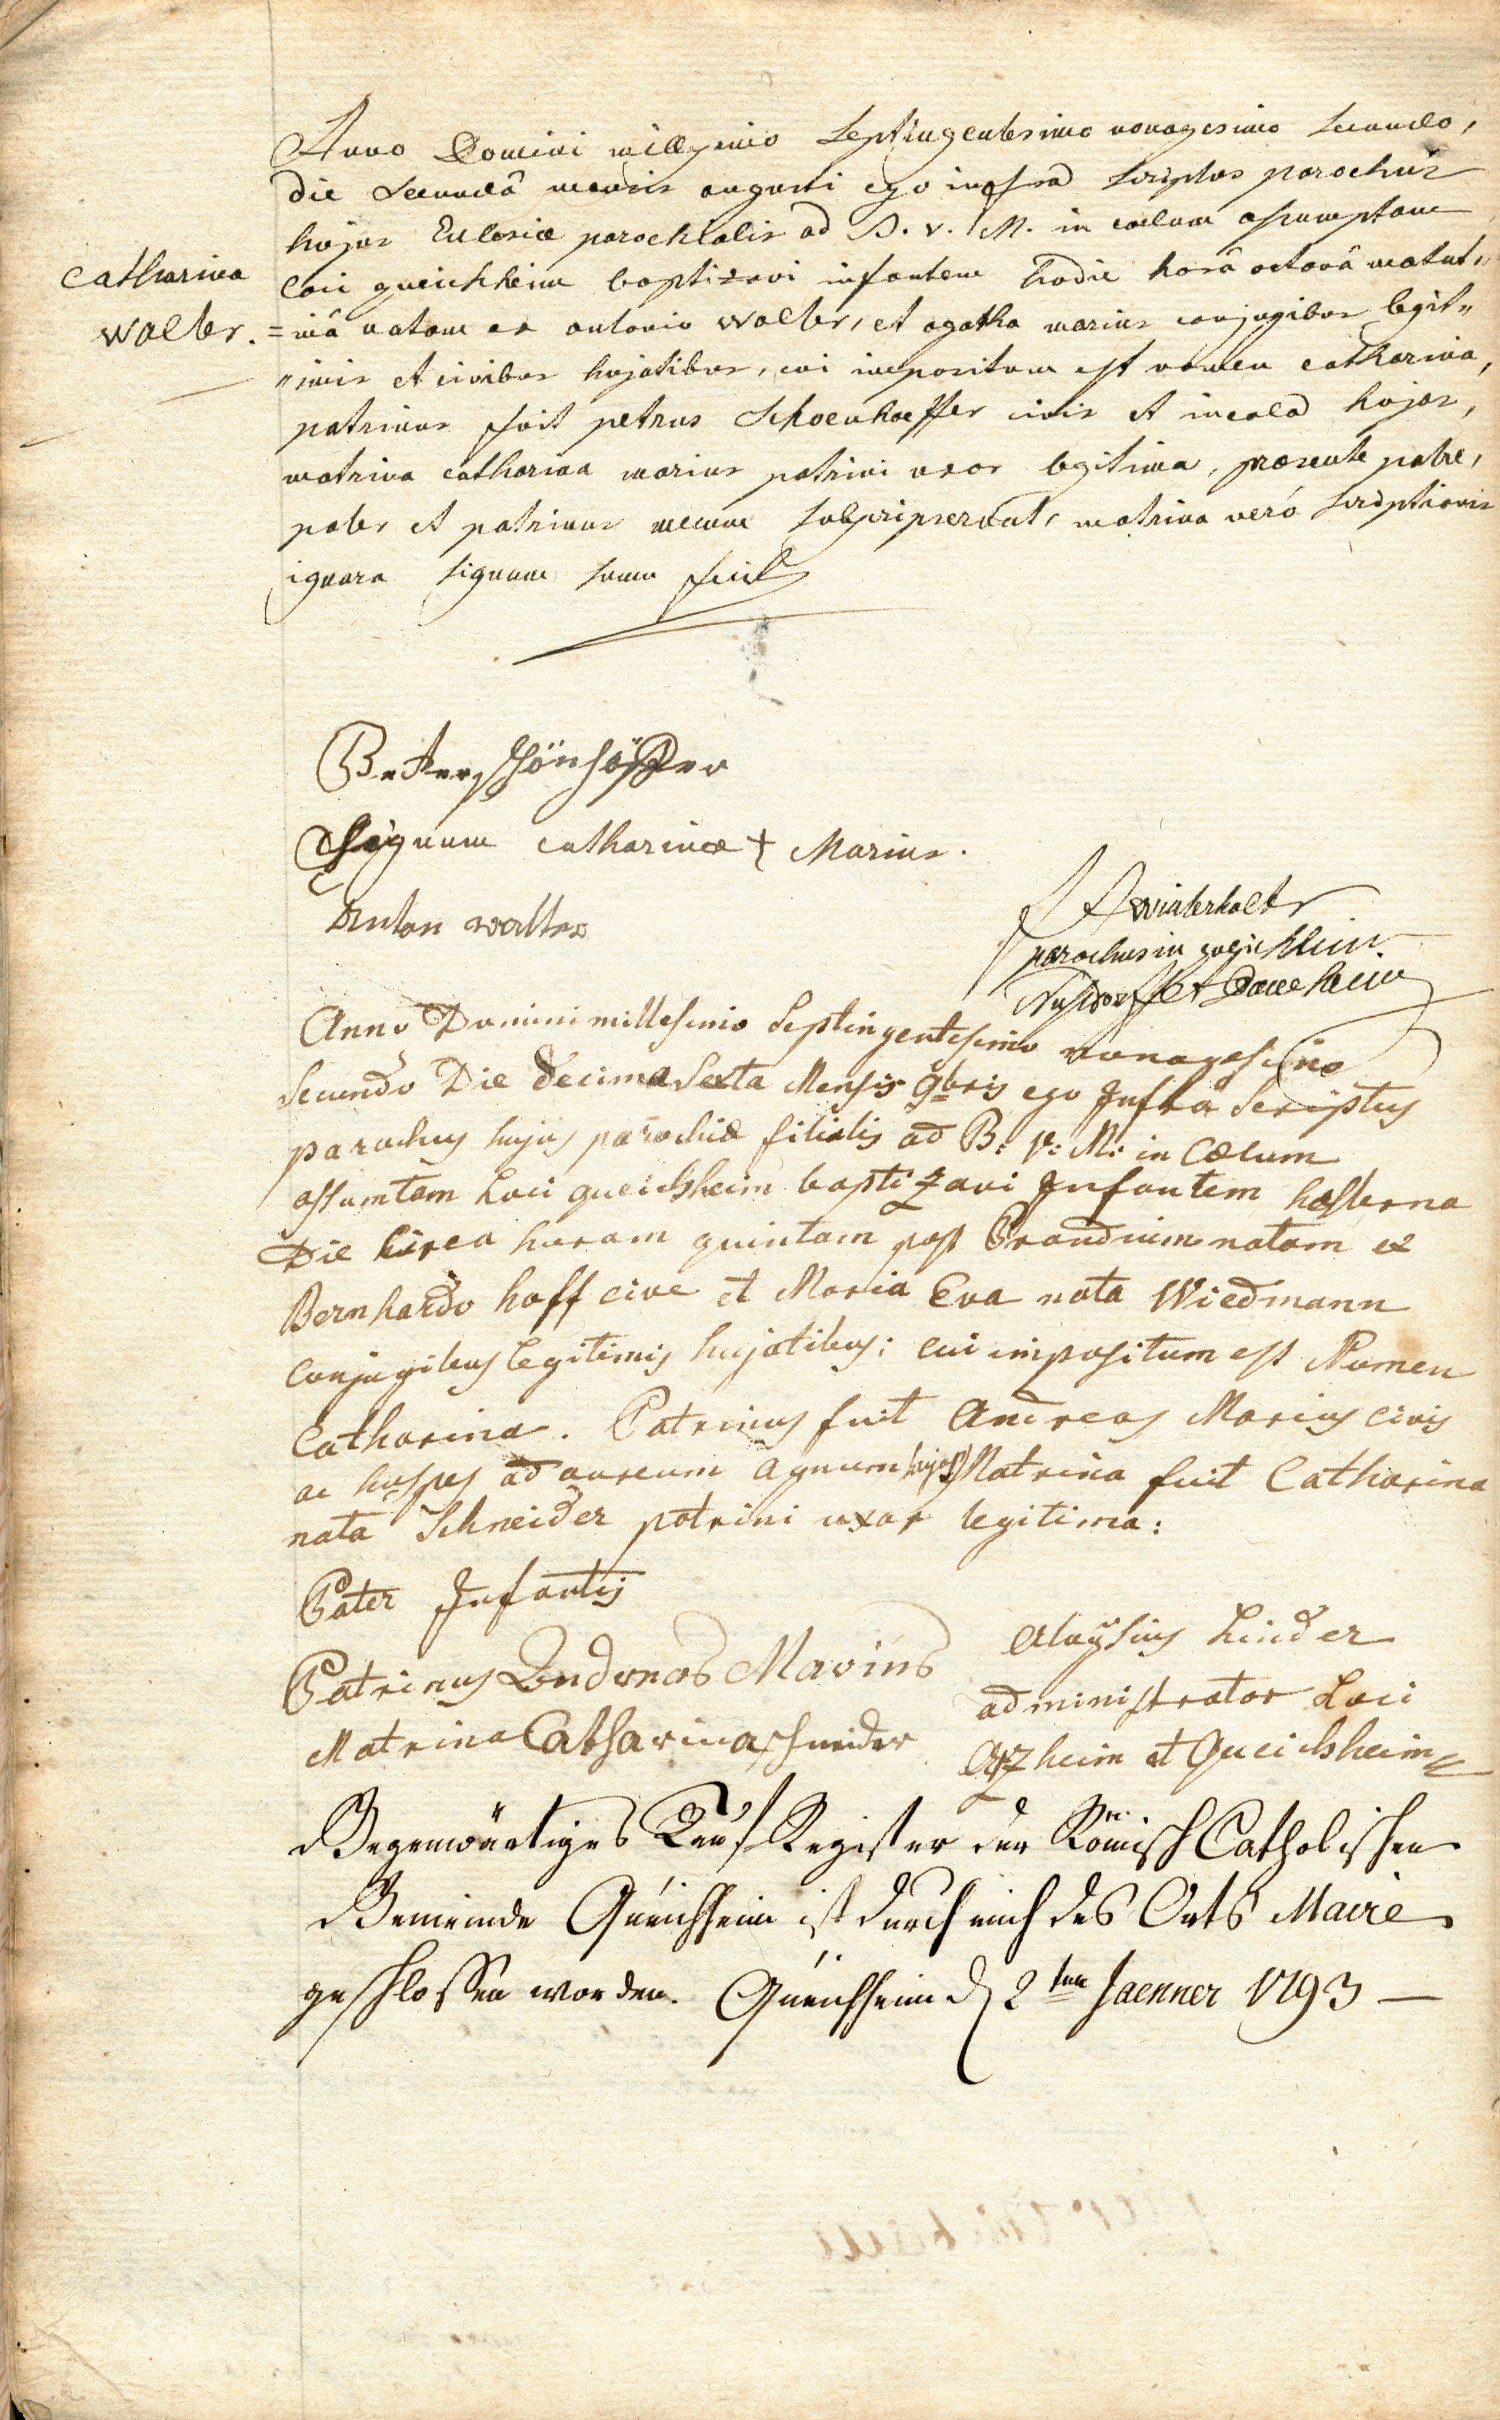 Anno Domini millesimo Septingentesimo nonagesimo secundo,
die secundâ mensis augusti ego infra scriptus parochus
hujus Ecclesiae parochialis ad B. v. M. in coelum assumptam
Catharina
Walter.
loci queichheim baptizavi infantem hodie horâ octavâ matut„
=inâ natam ex antonio walter, et agatha marius conjugibus legit„
„imis et civibus hujatibus, cui impositum est nomen catharina,
patrinus fuit petrus Schoenhoeffer civis et incola hujas,
matrina catharina marius patrini uxor legitima, praesente patre,
pater et patrinus mecum subscripserunt, matrina verò scriptionis
ignara signum suum fecit
Petter schönhöffer
Signum catharinae + Marius.
Anton walter
winterholer
parochus in queichheim
Nusdorff et Dammheim
Anno Domini millesimo Septingentesimo nonagesimo
secundo Die decima Sexta Mensis 9bris ego Infra Scriptus
parochus hujus parochiae filialis ad B: V: M: in Caelum
assumtam Loci queichheim baptizavi Infantem hesterna
Die circa horam quintam post Prandium natam ex
Bernhardo hoff cive et Maria Eva nata Wiedmann
Conjugibus legitimis hujatibus; cui impositum est Nomen
Catharina. Patrinus fuit Andreas Marius civis
ac hospes ad aureum agnum hujas Matrina fuit Catharina
nata Schneider patrini uxor legitima:
Pater Infantis
Patrinus Andreas Marius
Matrina Catharina schneider
Aloysius Linder
administrator Loci
Arzheim et Queichheim
Gegenwärtiges Tauf Register der Römisch Catholischen
Gemeinde Queichheim ist durch mich des Orts Maire
geschlossen worden. Queichheim d 2ten Jaenner 1793 —